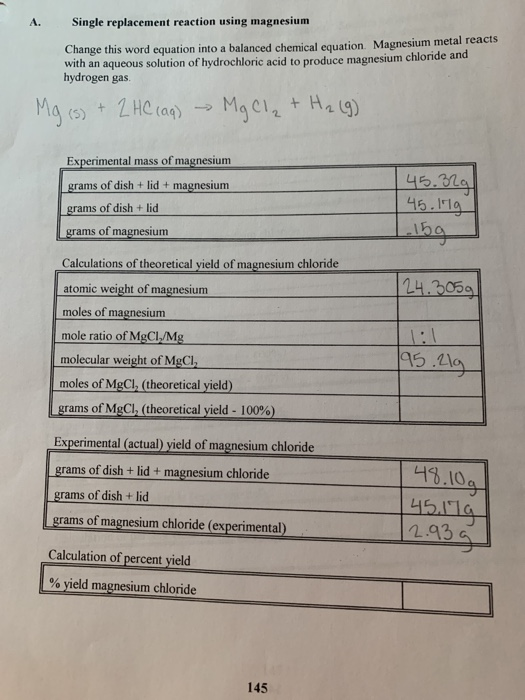 A. Single replacement reaction using magnesium
Change this word equation into a balanced chemical equation. Magnesium metal reacts
with an aqueous solution of hydrochloric acid to produce magnesium chloride and
hydrogen gas.
Mg (s) + 2HC(aq) → MgCl₂ + H₂(g)
Experimental mass of magnesium
grams of dish + lid + magnesium 45.32g
grams of dish + lid 45.17g
grams of magnesium .15g
Calculations of theoretical yield of magnesium chloride
atomic weight of magnesium 24.305g
moles of magnesium
mole ratio of MgCl₂/Mg 1:1
molecular weight of MgCl₂ 95.21g
moles of MgCl₂ (theoretical yield)
grams of MgCl₂ (theoretical yield - 100%)
Experimental (actual) yield of magnesium chloride
grams of dish + lid + magnesium chloride 48.10g
grams of dish + lid 45.17g
grams of magnesium chloride (experimental) 2.93g
Calculation of percent yield
% yield magnesium chloride
145